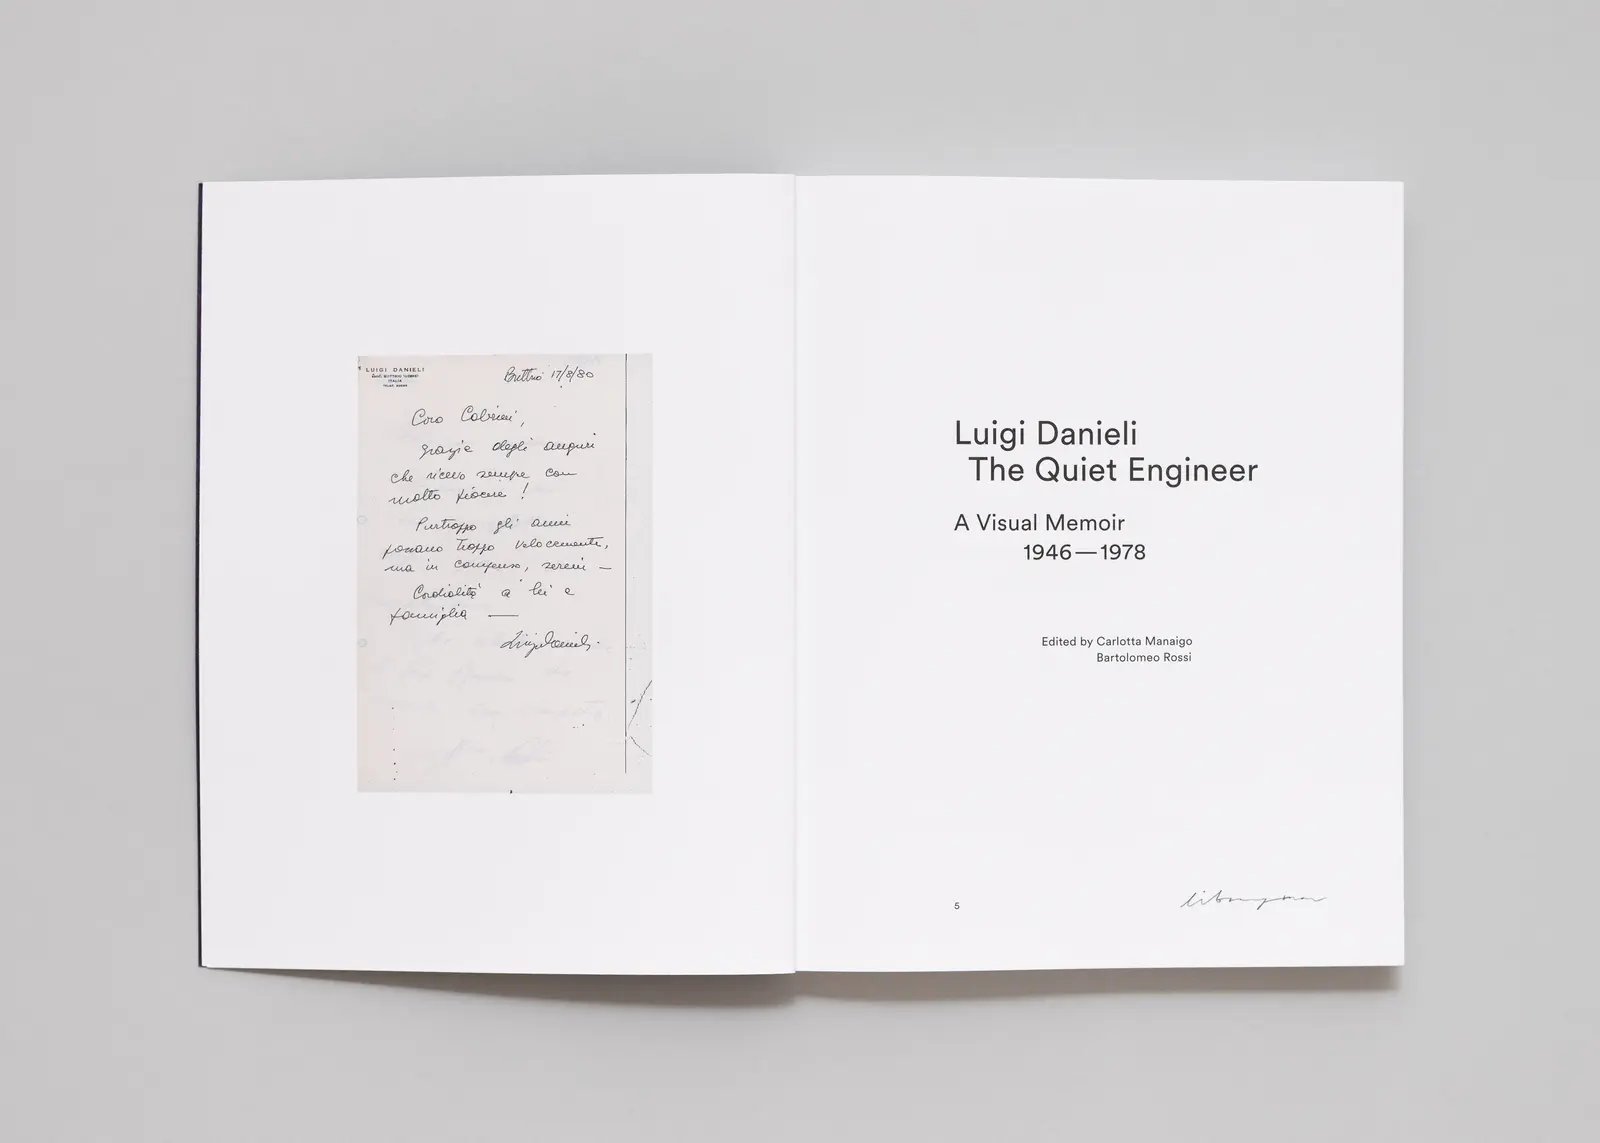 LUIGI DANIELI
ITALIA
Buttrio 17/8/80
Caro Cabrini,
grazie degli auguri
che ricevo sempre con
molto piacere !
Purtroppo gli anni
passano troppo velocemente,
ma in compenso, sereni —
Cordialità a lei e
famiglia —
Luigi Danieli.
Luigi Danieli
The Quiet Engineer
A Visual Memoir
1946—1978
Edited by Carlotta Manaigo
Bartolomeo Rossi
5
libraryman